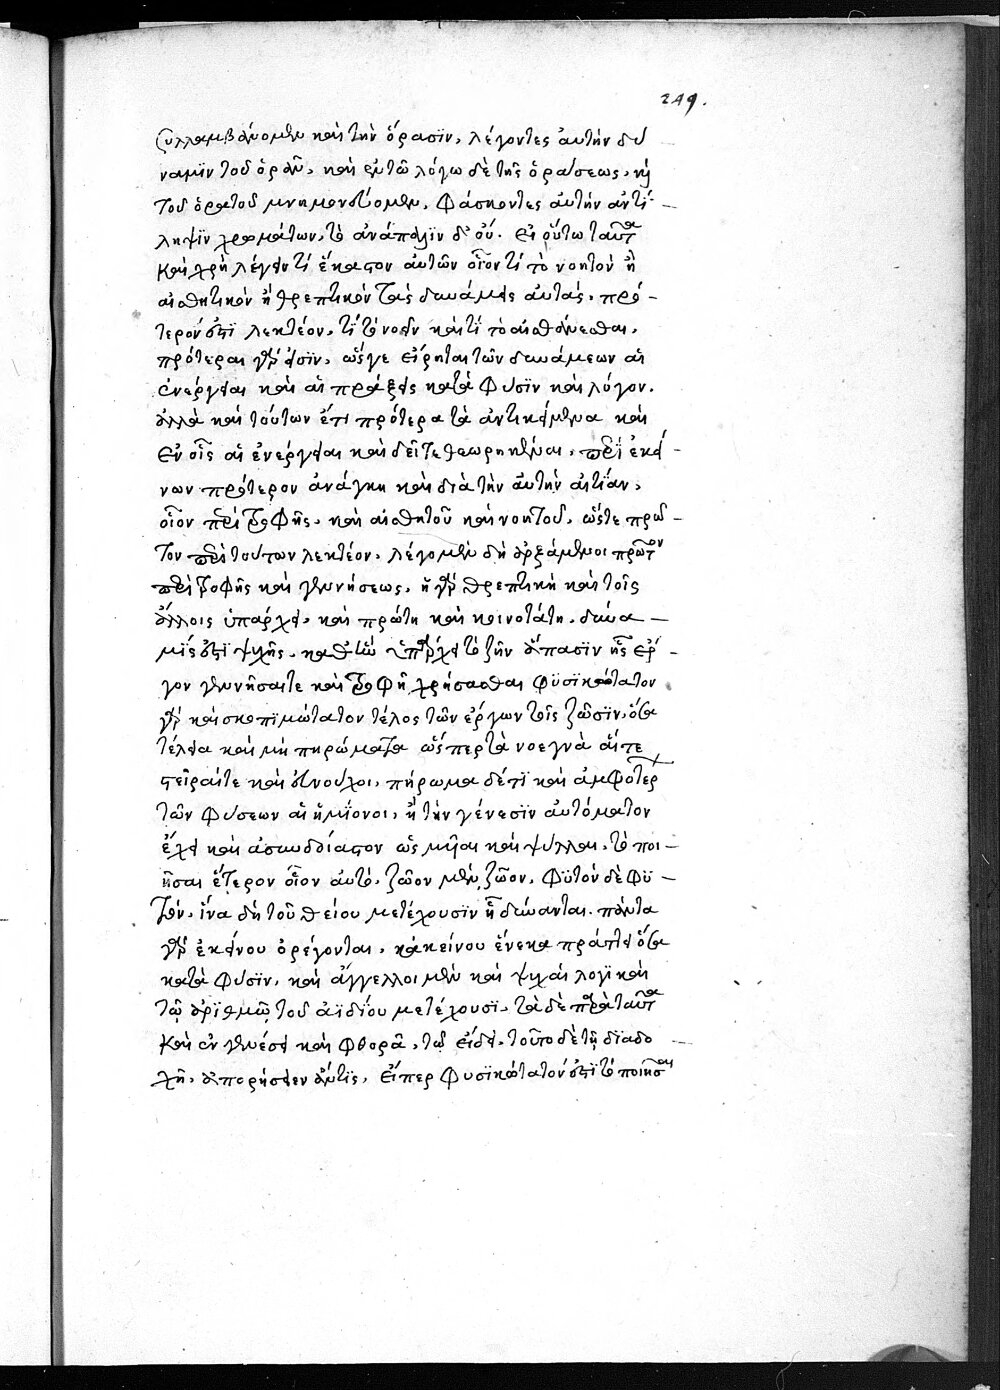 249.
συλλαμβάνομεν καὶ τὴν ὅρασϊν, λέγοντες ἀυτὴν δύ
ναμϊν τοῦ ὁρᾶν, καὶ ἐν τῶ λόγω δὲ τῆς ὁράσεως, καὶ
τοῦ ὁρατοῦ μνημονεύομεν, φάσκοντες ἀυτὴν ἀντί-
ληψϊν χρωμάτων, τὸ ἀνάπαλϊν δ' οὔ. εἰ οὕτω ταῦτα
καὶ χρὴ λέγειν τί ἕκαστον ἀυτῶν οἷον τί τὸ νοητὸν ἢ
αἰσθητικὸν ἢ θρεπτικὸν τὰς δυνάμεις αὐτάς, πρό-
τερον ἐστϊ λεκτέον, τί τὸ νοεῖν καὶ τί τὸ αἰσθάνεσθαι,
πρότεραι γάρ εἰσϊν, ὥς γε εἴρηται τῶν δυνάμεων αἱ
ἐνέργειαι καὶ αἱ πράξεις κατὰ φύσϊν καὶ λόγον.
ἀλλὰ καὶ τούτων ἔτι πρότερα τὰ ἀντικείμενα καὶ
ἐν οἷς αἱ ἐνέργειαι καὶ δεῖ τεθεωρηκέναι, περὶ ἐκεί-
νων πρότερον ἀνάγκη καὶ διὰ τὴν ἀυτὴν αἰτίαν,
οἷον περὶ τροφῆς, καὶ αἰσθητοῦ καὶ νοητοῦ, ὥστε πρῶ-
τον περὶ τούτων λεκτέον, λέγομεν δὴ ἀρξάμενοι πρῶτον
περὶ τροφῆς καὶ γεννήσεως, ἡ γὰρ θρεπτικὴ καὶ τοῖς
ἄλλοις ὑπάρχει, καὶ πρώτη καὶ κοινοτάτη, δύνα-
μίς ἐστϊ ψυχῆς, καθ' ἣν ὑπάρχει τὸ ζῆν ἅπασϊν ἧς ἔρ-
γον γεννῆσαι τε καὶ τροφῆ χρήσασθαι φϋσϊκώτατον
γὰρ καὶ σκοπϊμώτατον τέλος τῶν ἔργων τοῖς ζῶσϊν, ὅσα
τέλεια καὶ μὴ πηρώματα ὥσπερ τὰ νοεγνὰ αἵτε
στεῖραι τε καὶ ἐυνοῦχοι, πήρωμα δέ τϊ καὶ ἀμφοτέρ
τῶν φύσεων αἱ ἡμΐονοι, ἢ τὴν γένεσϊν αὐτόματον
ἔχει καὶ ἀσυνδύαστον ὡς μυῖαι καὶ ψύλλαι, τὸ ποι-
ῆσαι ἕτερον οἷον αὐτὸ, ζῶον μὲν ζῶον, φϋτὸν δὲ φϋ-
τόν, ἵνα δὴ τοῦ θείου μετέχουσϊν ᾗ δύνανται. πάντα
γὰρ ἐκείνου ὀρέγονται, κἀκείνου ἕνεκα πράττει ὅσα
κατὰ φύσϊν, καὶ ἄγγελλοι μὲν καὶ ψυχαὶ λογϊκαὶ
τῷ ἀρϊθμῷ τοῦ ἀϊδΐου μετέχουσϊ, τὰ δὲ παρὰ ταῦτα
καὶ ἐν γενέσει καὶ φθορᾶ, τῷ εἴδει, τοῦτο δὲ τῇ δϊαδο
χῆ, ἀπορήσειεν ἄν τϊς, εἴπερ φυσϊκώτατόν ἐστϊ τὸ ποιῆσαι